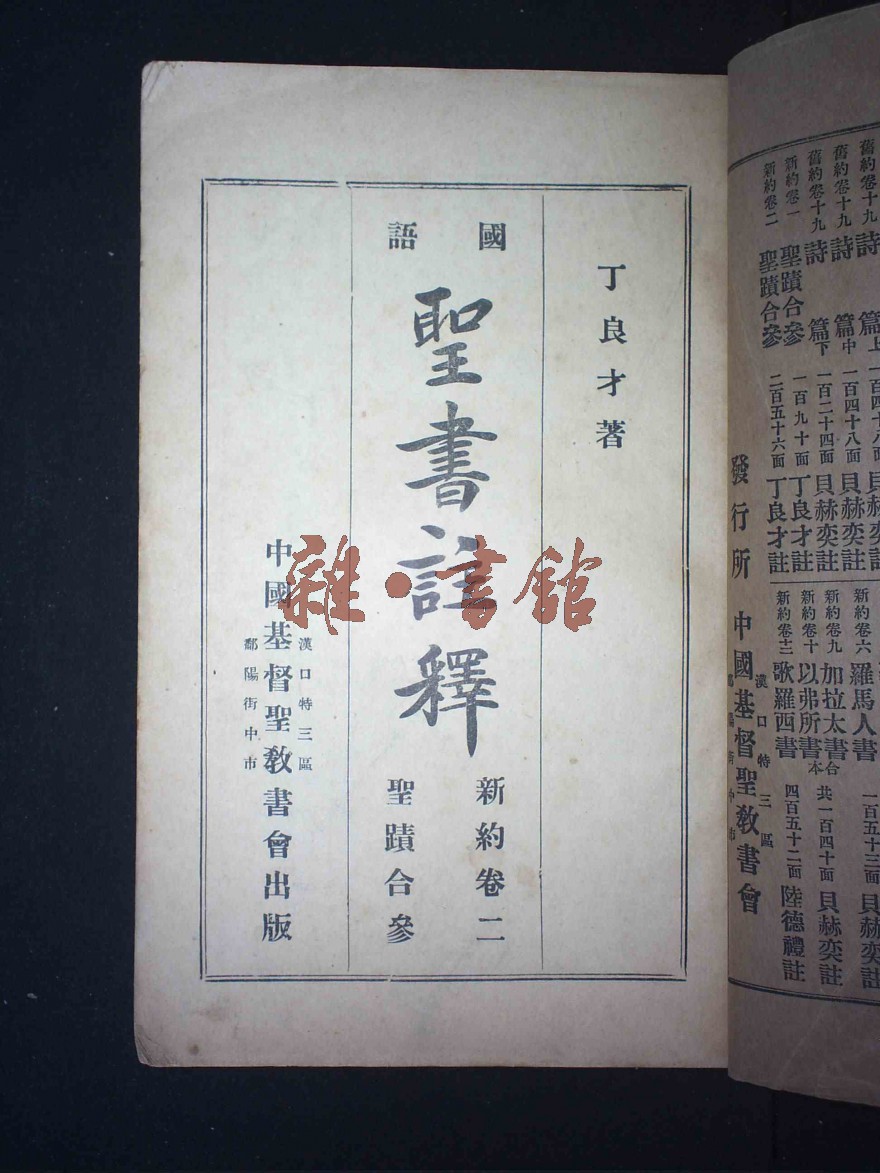 丁良才著
國語
聖書註釋
新約卷二
聖蹟合參
漢口特三區
中國基督聖教書會出版
鄱陽街中市
雜·書館
舊約卷十九 詩篇上
貝赫奕註
舊約卷十九 詩篇中 一百四十八面 貝赫奕註
舊約卷十九 詩篇下 一百二十四面 貝赫奕註
新約卷一 聖蹟合參 一百九十面 丁良才註
新約卷二 聖蹟合參 二百五十六面 丁良才註
新約卷六 羅馬人書 一百五十三面 貝赫奕註
新約卷九 加拉太書
新約卷十 以弗所書 合本 共一百四十面 貝赫奕註
新約卷十二 歌羅西書 四百五十二面 陸德禮註
漢口特三區
發行所 中國基督聖教書會